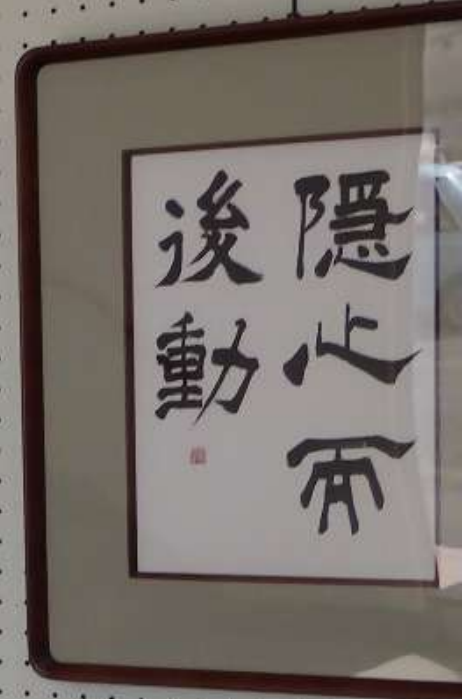 隱心而
後動